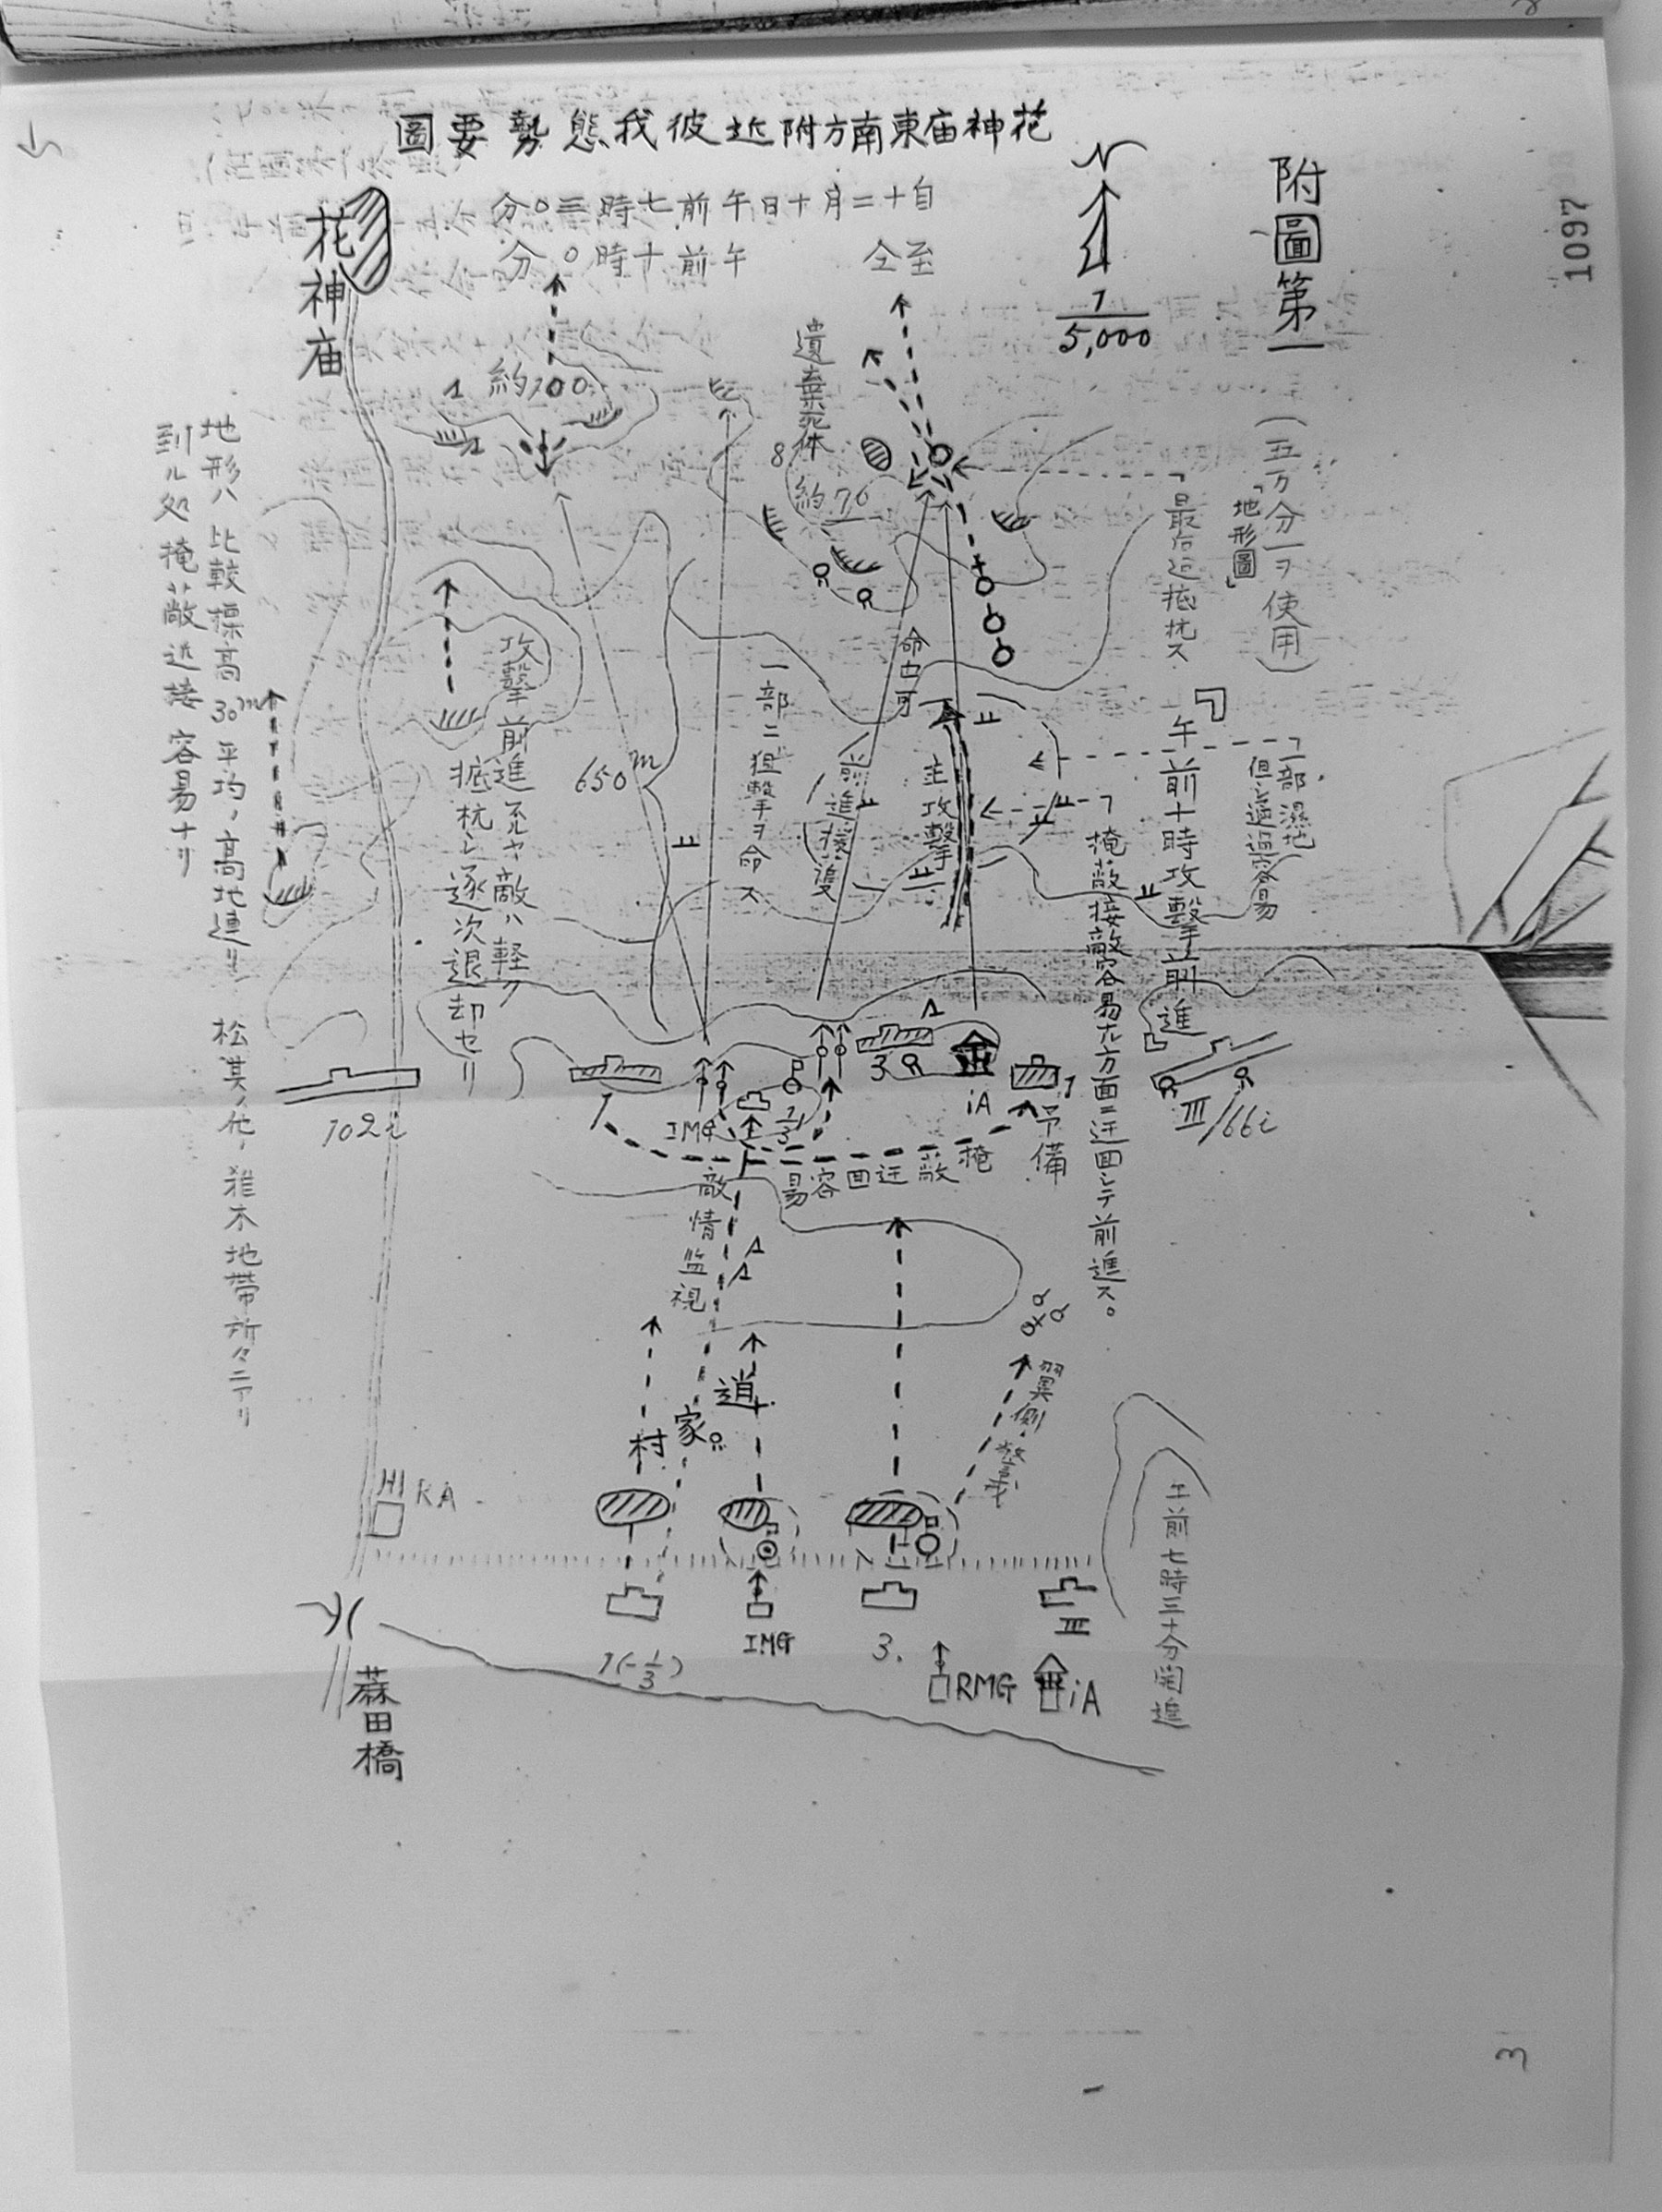 附圖第一
1097
(五万分一ヲ使用)
「地形圖」
花神庙東南方附近彼我態勢要圖
自十二月十日午前七時三〇分
至仝 午前十時〇分
N
1
5,000
花神庙
約100
遺棄死体
8
約70
最后迠抵抗ス
一部濕地
但シ通過容易
午前十時攻撃前進
掩蔽接敵容易ナル方面ニ迂回シテ前進ス。
命中可
主攻撃
前進援護
一部ニ狙撃ヲ命ス
650m
攻撃前進スルヤ敵ハ軽ク
抵抗シ逐次退却セリ
地形ハ比較標高30m平均ノ高地連リ 松其ノ他ノ雑木地帶所々ニアリ
到ル処掩蔽近接容易ナリ
102i
1
IMG
1/3
3
iA
1
予備
III/66i
掩蔽迂回容易
敵情監視
翼側警戒
道
家
村
RA
午前七時三十分開進
1(-1/3)
IMG
3.
RMG
III
iA
蔴田橋
3